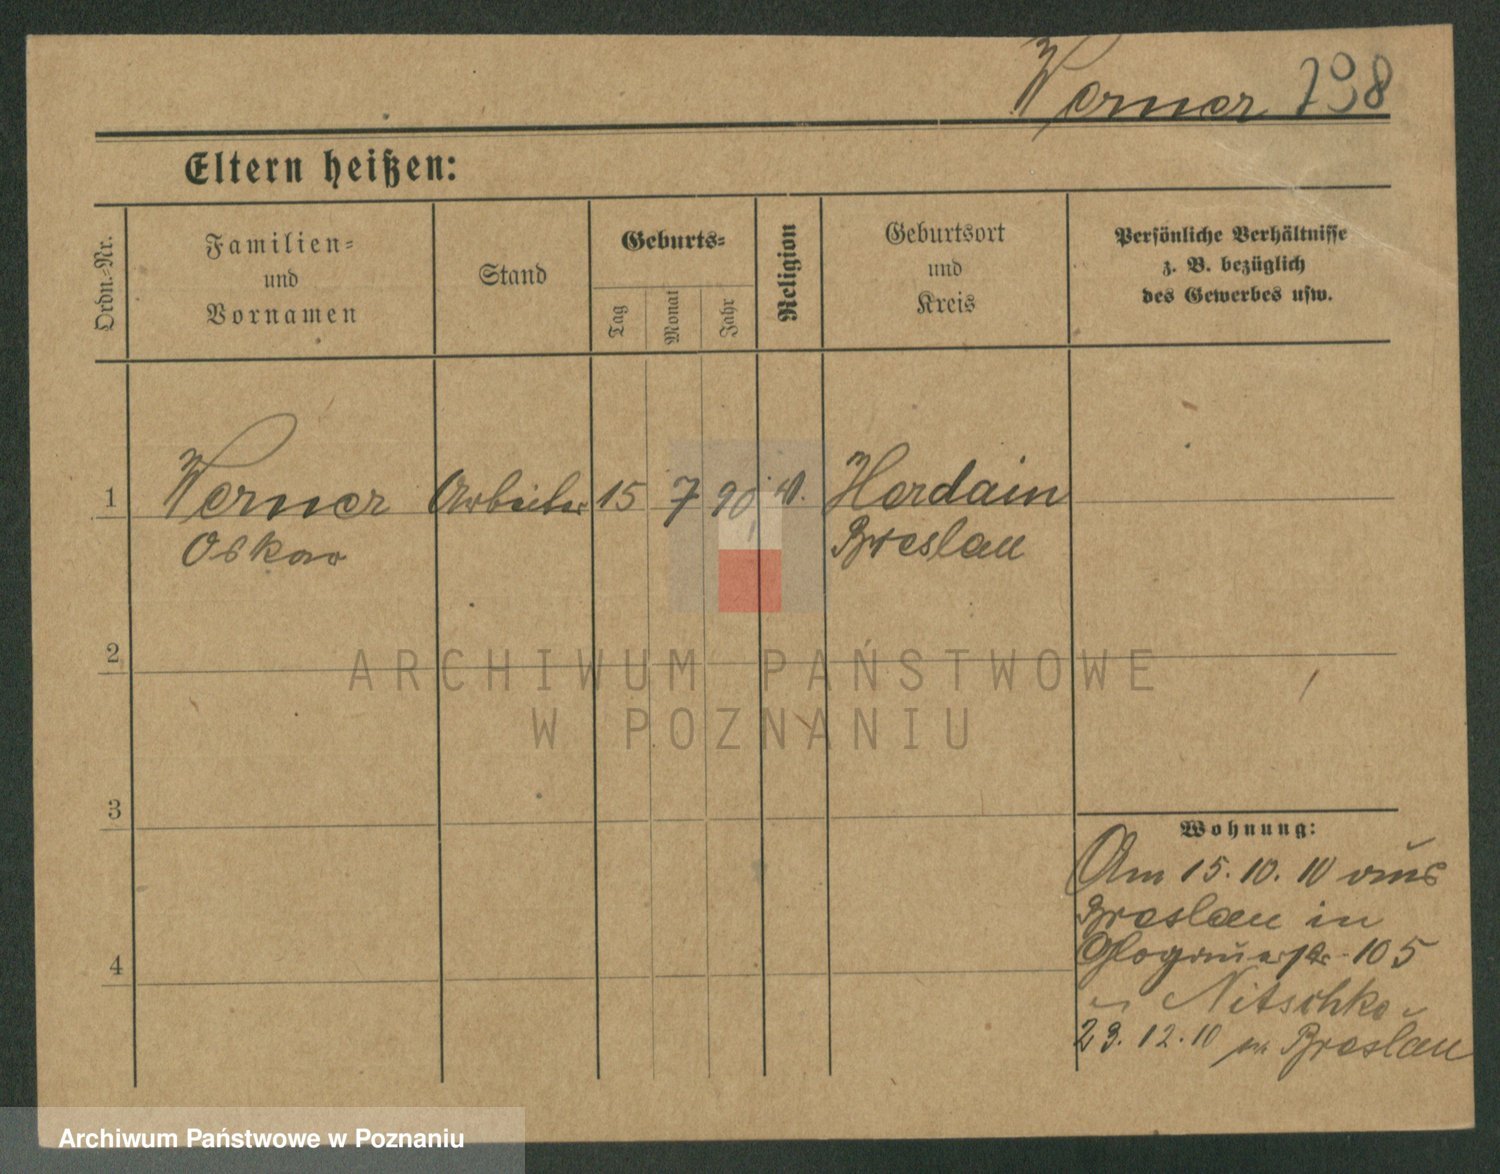 Werner 798
Eltern heißen:
Ordn.-Nr.
Familien-
und
Vornamen
Stand
Geburts-
Tag
Monat
Jahr
Religion
Geburtsort
und
Kreis
Persönliche Verhältnisse
z. B. bezüglich
des Gewerbes usw.
1
Werner
Oskar
Arbeiter
15
7
90
Herdain
Breslau
2
3
4
Wohnung:
Am 15.10.10 aus
Breslau in
Glogauerstr. 105
Nitschke
23.12.10 Breslau
ARCHIWUM PAŃSTWOWE
W POZNANIU
Archiwum Państwowe w Poznaniu